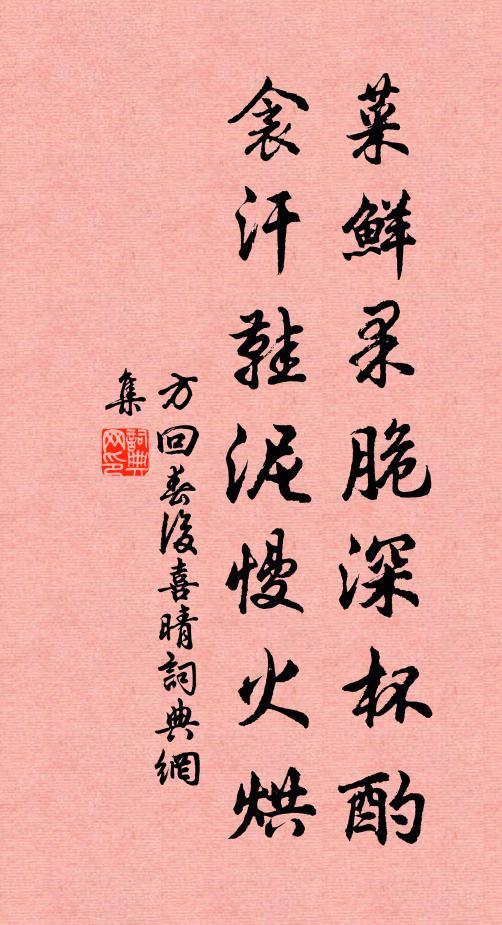 菜鮮柔脆深杯酌
衾汗鞋泥慢火烘
方回春後喜晴詞典網
集
詞典
网印